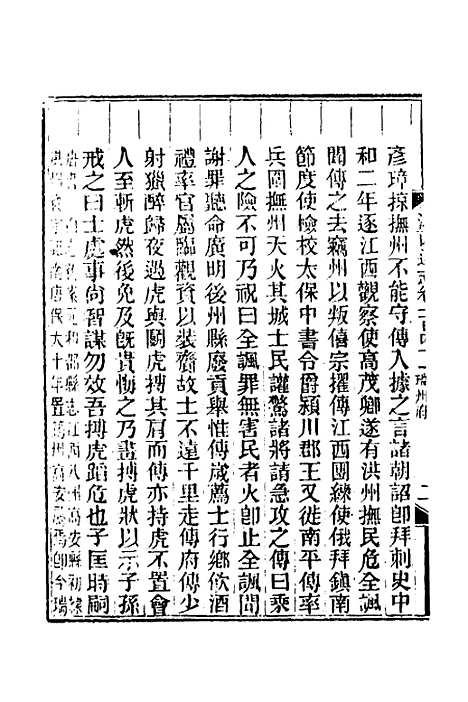 彥璋掠撫州不能守傳入據之言諸朝詔卽拜刺史中
和二年逐江西觀察使高茂卿遂有洪州撫民危全諷
間傳之去竊州以叛僖宗擢傳江西團練使俄拜鎮南
節度使檢校太保中書令爵潁川郡王又徙南平傳率
兵圍撫州天火其城士民讙驚諸將請急攻之傳曰乘
人之險不可乃祝曰全諷罪無害民者火卽止全諷聞
謝罪聽命廣明後州縣廢貢舉惟傳歲薦士行鄉飮酒
禮率官屬臨觀資以裝齎故士不遠千里走傳府傳少
射獵醉歸夜遇虎與鬭虎搏其肩而傳亦持虎不置會
人至斬虎然後免及旣貴悔之乃畫搏虎狀以示子孫
戒之曰士處事尙智謀勿效吾搏虎蹈危也子匡時嗣
唐保大十年置筠州高安
州高安縣
卽今瑞
瑞州府
二